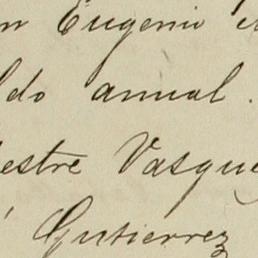 n Eugenio
ldo anual.
estre Vasque
Gutierrez